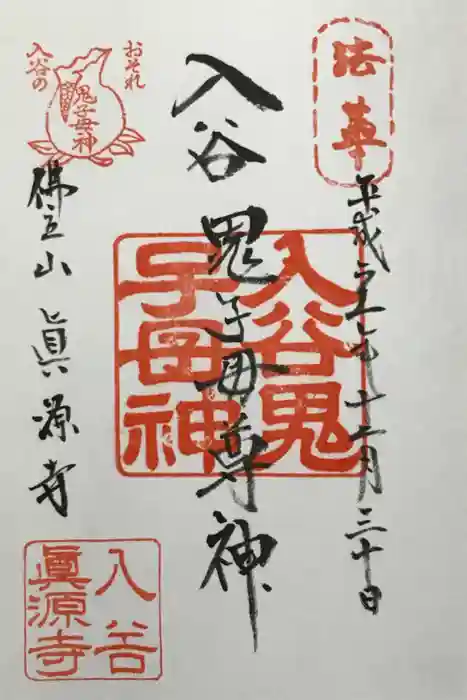 法華
平成二十五年十二月三十日
入谷鬼子母尊神
入谷鬼
子母神
おそれ
入谷の
鬼子母神
佛立山 眞源寺
入谷
眞源寺